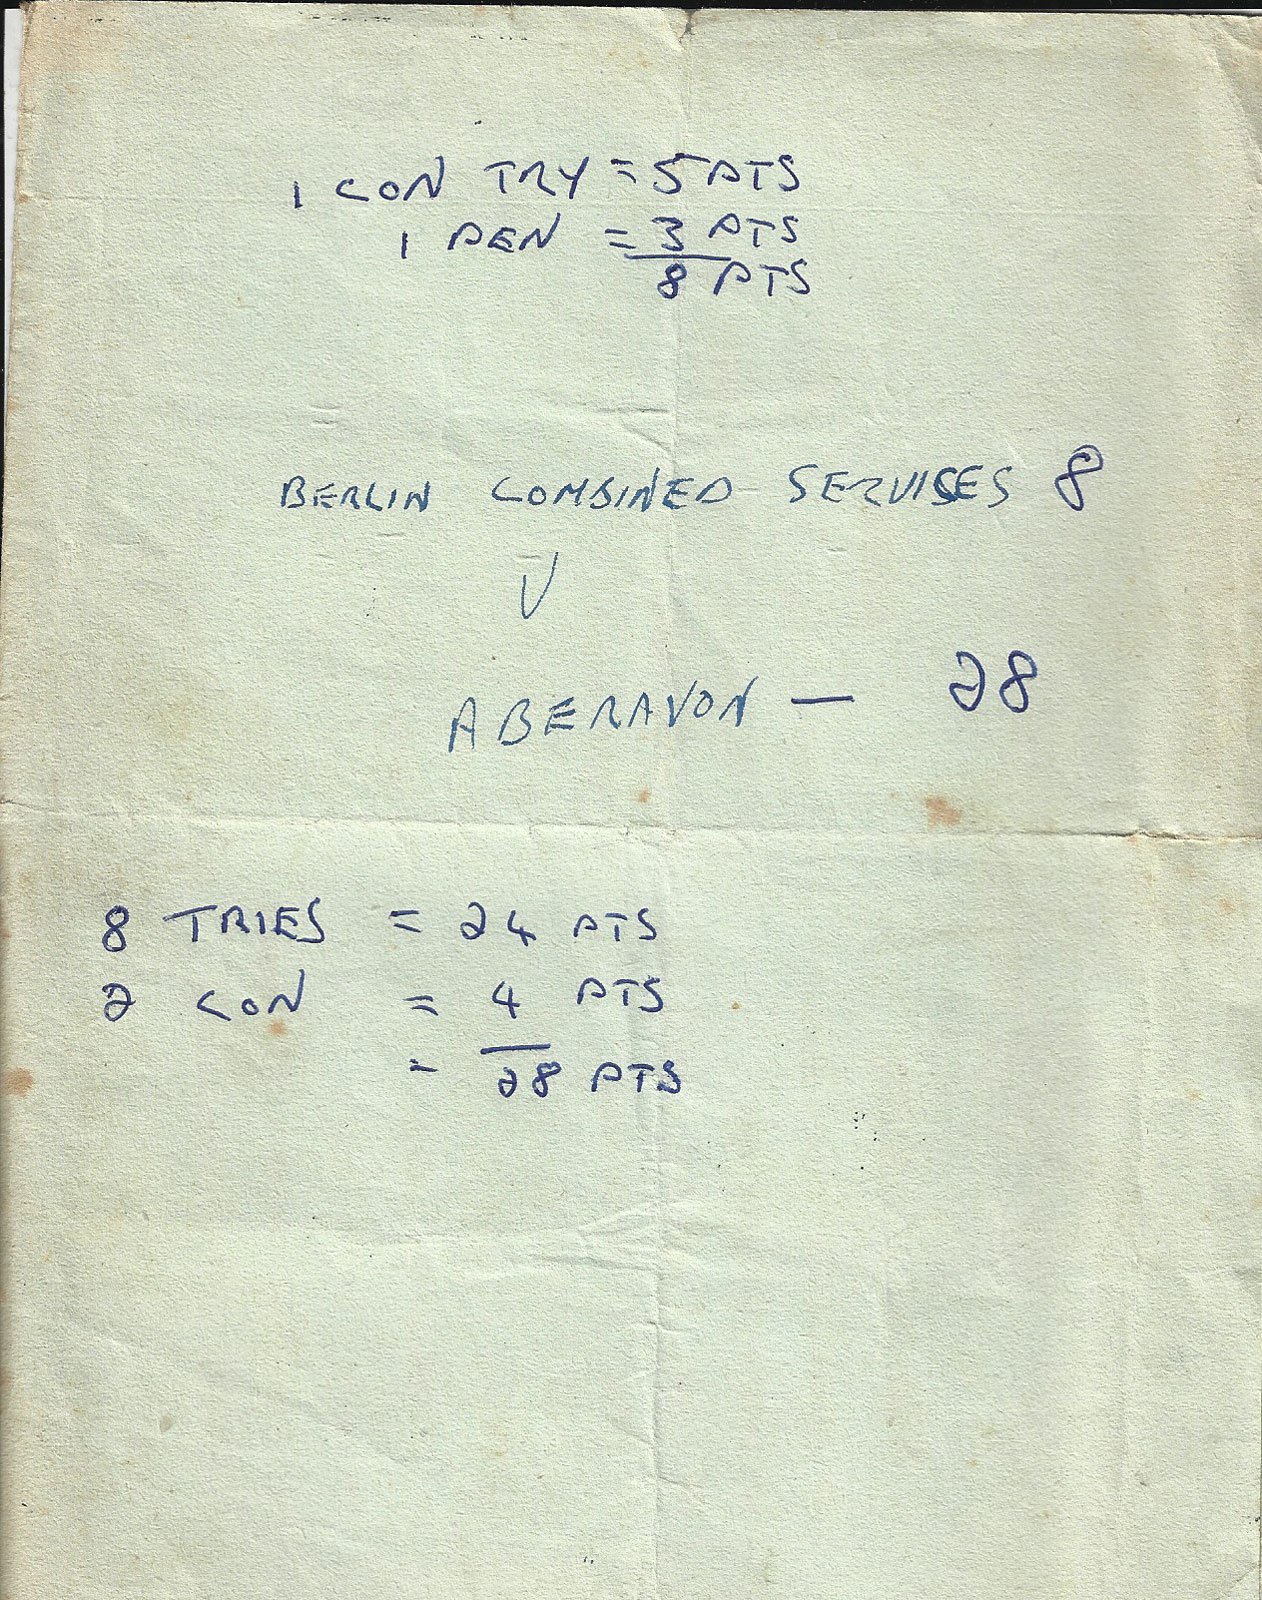 1 CON TRY = 5 PTS
1 PEN = 3 PTS
8 PTS
BERLIN COMBINED SERVICES 8
V
ABERAVON — 28
8 TRIES = 24 PTS
2 CON = 4 PTS
= 28 PTS